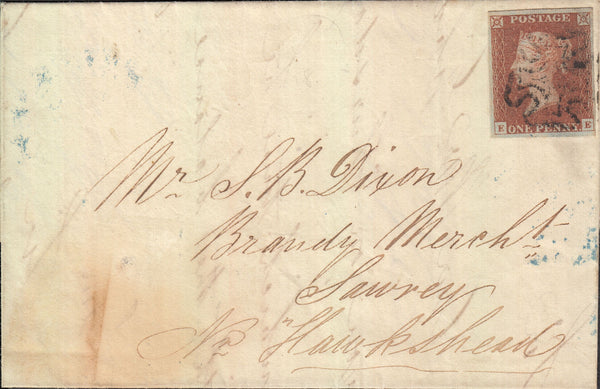 POSTAGE
E E
ONE PENNY
Mr S. B. Dixon
Brandy Mercht
Sawrey
Nr Hawkshead